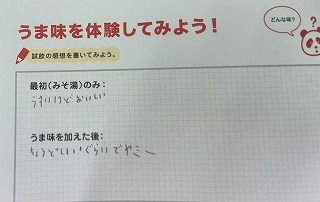 うま味を体験してみよう!
どんな味?
試飲の感想を書いてみよう。
最初(みそ湯)のみ:
うすいけどおいしい
うま味を加えた後:
ちょうどいいぐらいでヤミー